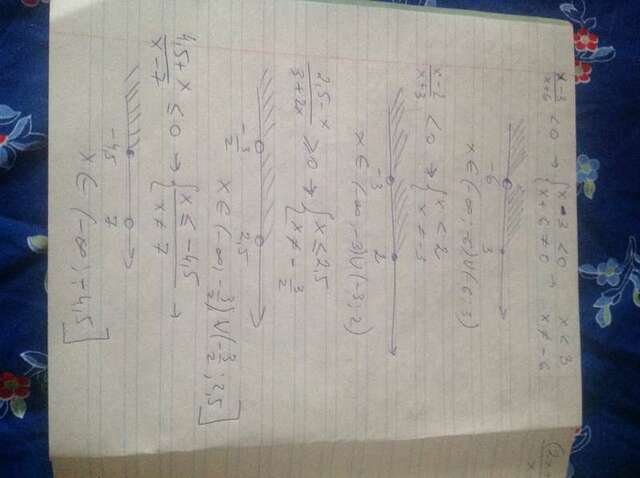 (x-3)/(x+6) < 0 → { x-3 < 0 → x < 3
{ x+6 ≠ 0 x ≠ -6
-6 3
x ∈ (-∞; -6) ∪ (-6; 3)
(x-2)/(x+3) < 0 → { x < 2
{ x ≠ -3
-3 2
x ∈ (-∞; -3) ∪ (-3; 2)
(2,5-x)/(3+2x) ≥ 0 → { x ≤ 2,5
{ x ≠ -3/2
-3/2 2,5
x ∈ (-∞; -3/2) ∪ (-3/2; 2,5]
(4,5+x)/(x-7) ≤ 0 → { x ≤ -4,5
{ x ≠ 7
-4,5 7
x ∈ (-∞; -4,5]